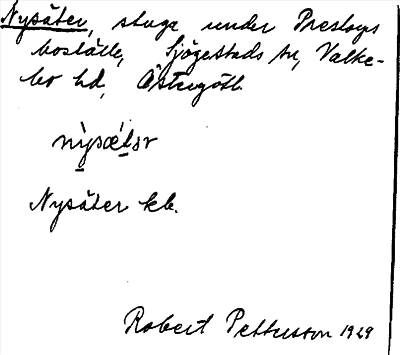 Nysäter, stuga under Prestbys
boställe, Sjögestads sn, Valke-
bo hd, Östergötl.
nỳsǽtər
Nysäter kb.
Robert Pettersson 1929